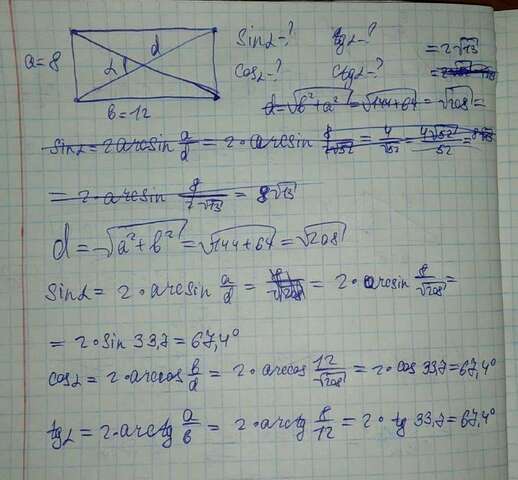 a=8
d
α
b=12
sinα-? tgα-?
cosα-? ctgα-?
=2√13
d=√b²+a²=√144+64=√208=
sinα=2arcsin a/d = 2·arcsin 8/2√52 = 4/√52 = 4√52/52 = 8√13
=2·arcsin 8/2√13 = 8√13
d=√a²+b²=√144+64=√208
sinα=2·arcsin a/d = 8/√208 = 2·arcsin 8/√208 =
=2·sin 33,7=67,4°
cosα=2·arccos b/d = 2·arccos 12/√208 = 2·cos 33,7=67,4°
tgα=2·arctg a/b = 2·arctg 8/12 = 2·tg 33,7=67,4°